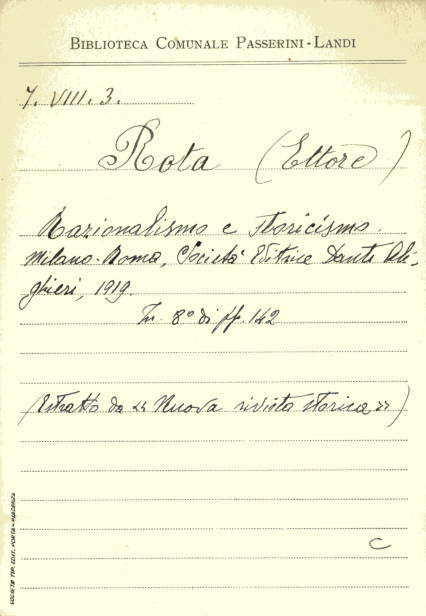 BIBLIOTECA COMUNALE PASSERINI-LANDI
7. VIII. 3.
Rota (Ettore)
Razionalismo e storicismo.
Milano-Roma, Società Editrice Dante Ali-
ghieri, 1919.
In. 8° di pp. 142
(Estratto da « Nuova rivista storica »)
C
SOCIETÀ TIP. EDIT. PORTA - PIACENZA